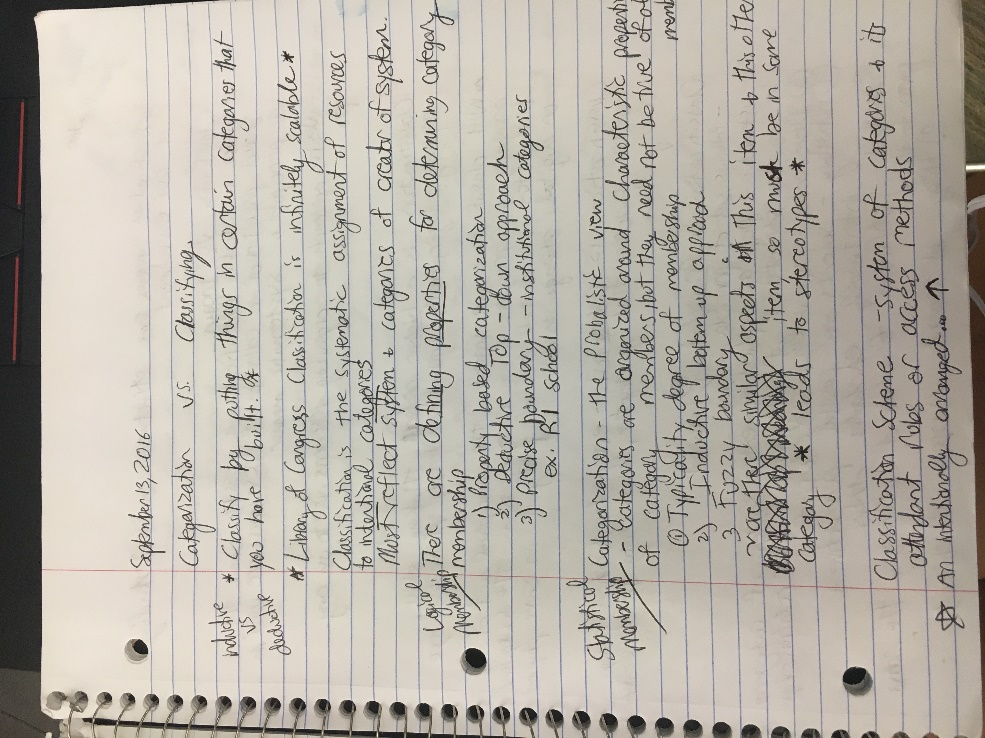 September 13, 2016
Categorization vs. Classifying
inductive vs deductive
* Classify by putting things in certain categories that
you have built. *
* Library of Congress Classification is infinitely scalable *
Classification is the systematic assignment of resources
to intentional categories
Must reflect system & categories of creator of system.
Logical Membership
There are defining properties for determining category
membership
1) Property based categorization
2) Deductive Top-down approach
3) Precise boundary - institutional categories
ex. R1 school
Statistical Membership
Categorization - the probalistic view
- Categories are organized around characteristic properti
of category members, but they need not be true of all
memb
① Typicality degree of membership
2) Inductive bottom up approach
3 Fuzzy boundary
~ are there similar aspects this item & this other
item so must be in same
category * leads to stereotypes *
Classification Scheme - System of categories & its
attendant rules or access methods
☆ An intentionally arranged... ↑